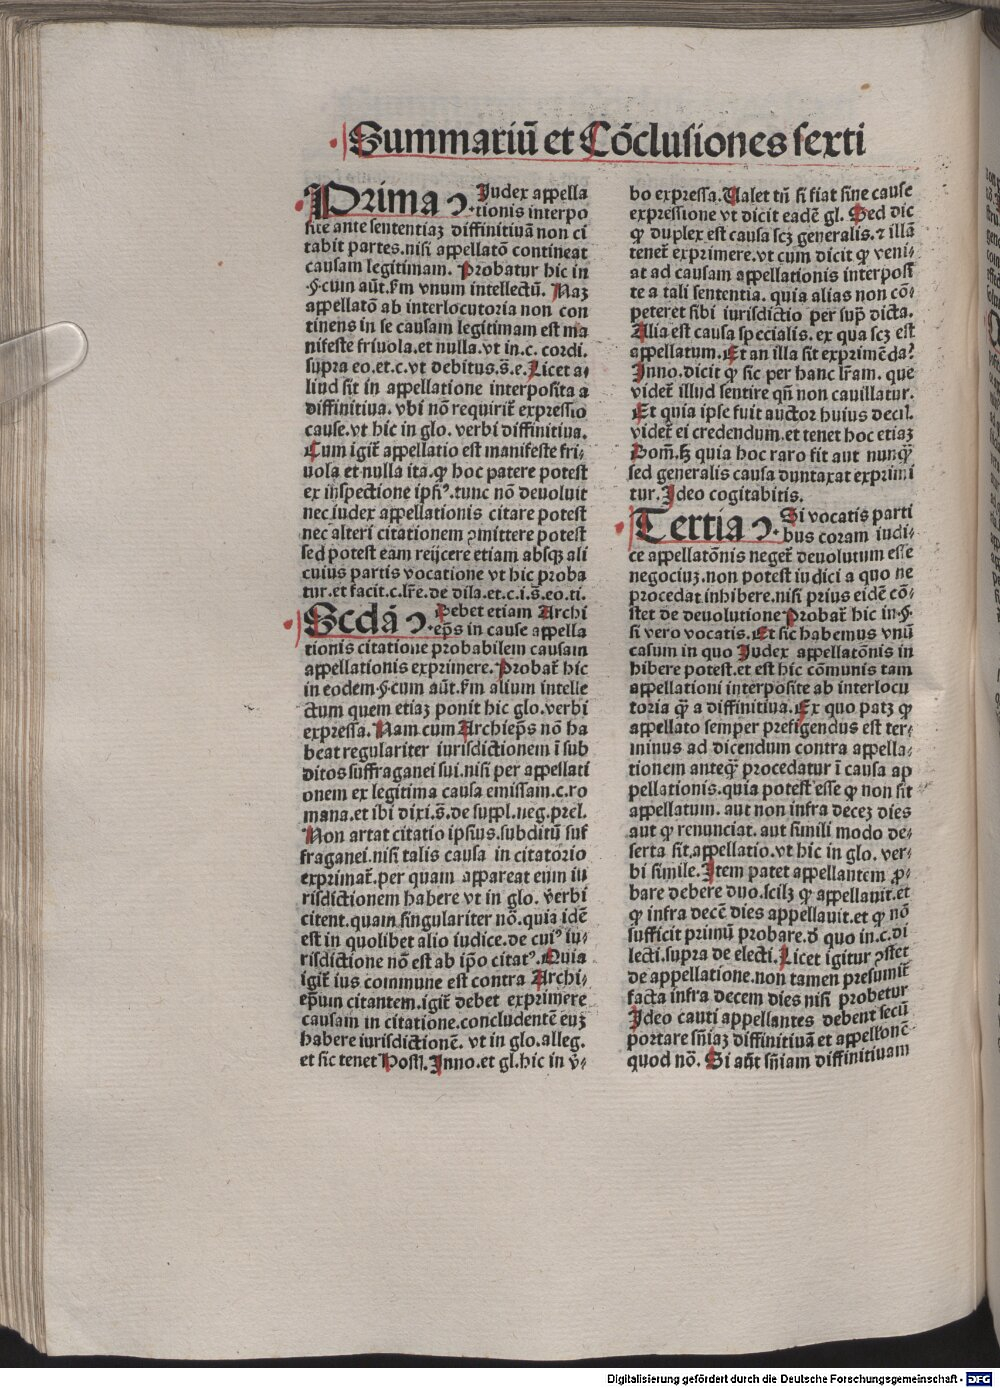 Summariū et Cōclusiones sexti
Prima ↄ. Iudex appella
tionis interpo
site ante sententiaꝫ diffinitiuā non ci
tabit partes.nisi appellatō contineat
causam legitimam. Probatur hic in
§.cum aūt.ẜm vnum intellectū. Naꝫ
appellatō ab interlocutoria non con
tinens in se causam legitimam est ma
nifeste friuola.et nulla.vt in.c. cordi.
supra eo.et.c.vt debitus.s̄.e.Licet a⸗
liud sit in appellatione interposita a
diffinitiua. vbi nō requirit̄ expressio
cause.vt hic in glo. verbi diffinitiua.
Cum igit̄ appellatio est manifeste fri⸗
uola et nulla ita.ꝙ hoc patere potest
ex inspectione ipsiꝰ.tunc nō deuoluit
nec iudex appellationis citare potest
nec alteri citationem ꝯmittere potest
sed potest eam reijcere etiam absqꝫ ali
cuius partis vocatione vt hic proba
tur.et facit.c.lr̄e.de dila.et.c.i.s̄.eo.ti.
Scd́a ↄ. Debet etiam Archi
ep̄s in cause appella
tionis citatione probabilem causam
appellationis exprimere. Probat̄ hic
in eodem §.cum aūt.ẜm alium intelle
ctum quem etiaꝫ ponit hic glo.verbi
expressa. Nam cum Archiep̄s nō ha
beat regulariter iurisdictionem ī sub
ditos suffraganei sui.nisi per appellati
onem ex legitima causa emissam.c.ro
mana.et ibi dixi.s̄.de suppl.neg.prel.
Non artat citatio ipsius.subditū suf
fraganei.nisi talis causa in citatorio
exprimat̄.per quam appareat eum iu
risdictionem habere vt in glo. v̄erbi
citent.quam singulariter nō.quia idē
est in quolibet alio iudice.de cuiꝰ iu⸗
risdictione nō est ab ip̄o citatꝰ. Quia
igit̄ ius commune est contra Archi⸗
ep̄um citantem.igit̄ debet exprimere
causam in citatione.concludentē euꝫ
habere iurisdictionē. vt in glo.alleg.
et sic tenet Hosti. Inno.et gl.hic in v̄⸗
bo expressa. Ualet tn̄ si fiat sine cause
expressione vt dicit eadē gl. Sed dic
ꝙ duplex est causa scꝫ generalis.⁊ illā
tenet̄ exprimere.vt cum dicit ꝙ veni⸗
at ad causam appellationis interposi
te a tali sententia. quia alias non cō⸗
peteret sibi iurisdictio per sup̄ dicta.
Alia est causa specialis. ex qua scꝫ est
appellatum. Et an illa sit exprimēda?
Inno.dicit ꝙ sic per hanc lr̄am. que
videt̄ illud sentire qn̄ non cauillatur.
Et quia ipse fuit auctor huius decil.
videt̄ ei credendum.et tenet hoc etiaꝫ
Dom̄.sꝫ quia hoc raro fit aut nunqͣꝫ
sed generalis causa duntaxat exprimi
tur. Ideo cogitabitis.
Tertia ↄ. Si vocatis parti
bus coram iudi⸗
ce appellatōnis neget̄ deuolutum esse
negociuꝫ.non potest iudici a quo ne
procedat inhibere.nisi prius eidē cō⸗
stet de deuolutione Probat̄ hic in.§.
si vero vocatis. Et sic habemus vnū
casum in quo Iudex appellatōnis in
hibere potest.et est hic cōmunis tam
appellationi interposite ab interlocu
toria qͣꝫ a diffinitiua. Ex quo patꝫ ꝙ
appellato semper prefigendus est ter⸗
minus ad dicendum contra appella⸗
tionem anteqͣꝫ procedatur ī causa ap
pellationis.quia potest esse ꝙ non sit
appellatum. aut non infra deceꝫ dies
aut ꝙ renunciat. aut simili modo de⸗
serta sit.appellatio.vt hic in glo. ver⸗
bi simile. Item patet appellantem ꝓ⸗
bare debere duo.scilꝫ ꝙ appellauit.et
ꝙ infra decē dies appellauit.et ꝙ nō
sufficit primū probare.d̄ quo in.c.di
lecti.supra de electi. Licet igitur ꝯstet
de appellatione.non tamen presumit̄
facta infra decem dies nisi probetur
Ideo cauti appellantes debent secū
portare sn̄iaꝫ diffinitiuā et appellōnē
quod nō. Si aūt sn̄iam diffinitiuam
Digitalisierung gefördert durch die Deutsche Forschungsgemeinschaft - DFG